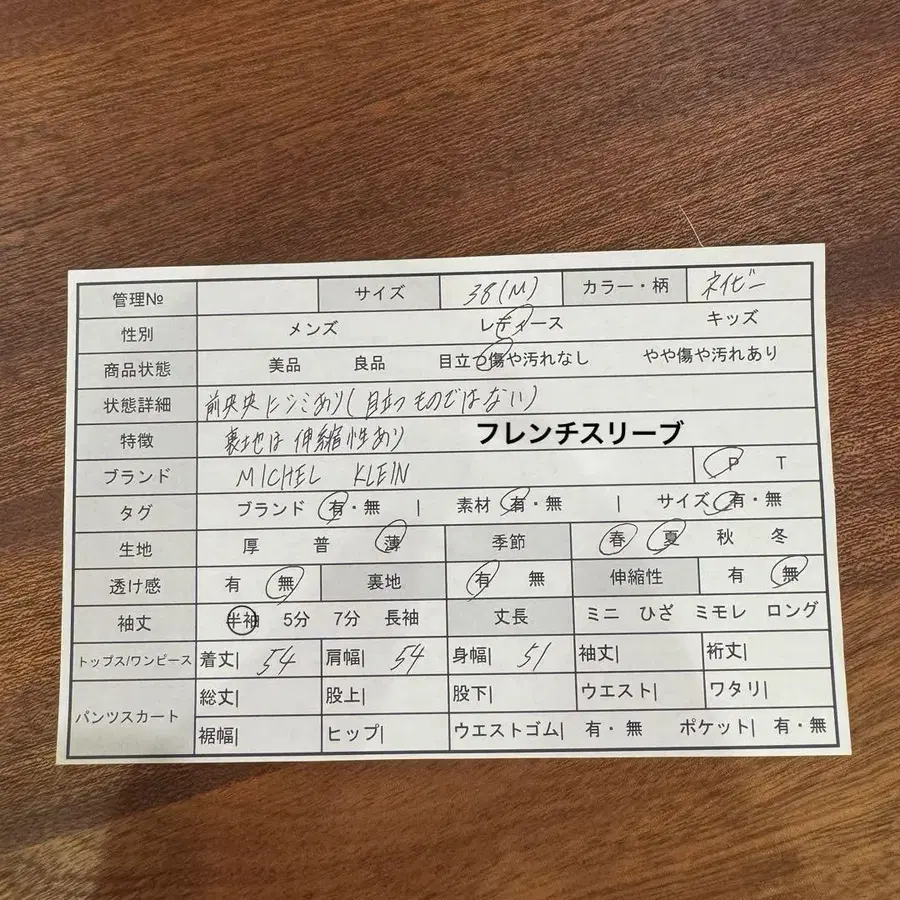 管理№ サイズ 38(M) カラー・柄 ネイビー
性別 メンズ レディース キッズ
商品状態 美品 良品 目立つ傷や汚れなし やや傷や汚れあり
状態詳細 前央央にシミあり(目立つものではない)
特徴 裏地は伸縮性あり フレンチスリーブ
ブランド MICHEL KLEIN P T
タグ ブランド 有・無 | 素材 有・無 | サイズ 有・無
生地 厚 普 薄 季節 春 夏 秋 冬
透け感 有 無 裏地 有 無 伸縮性 有 無
袖丈 半袖 5分 7分 長袖 丈長 ミニ ひざ ミモレ ロング
トップス/ワンピース 着丈| 54 肩幅| 54 身幅| 51 袖丈| 裄丈|
パンツスカート 総丈| 股上| 股下| ウエスト| ワタリ|
裾幅| ヒップ| ウエストゴム| 有・無 ポケット| 有・無